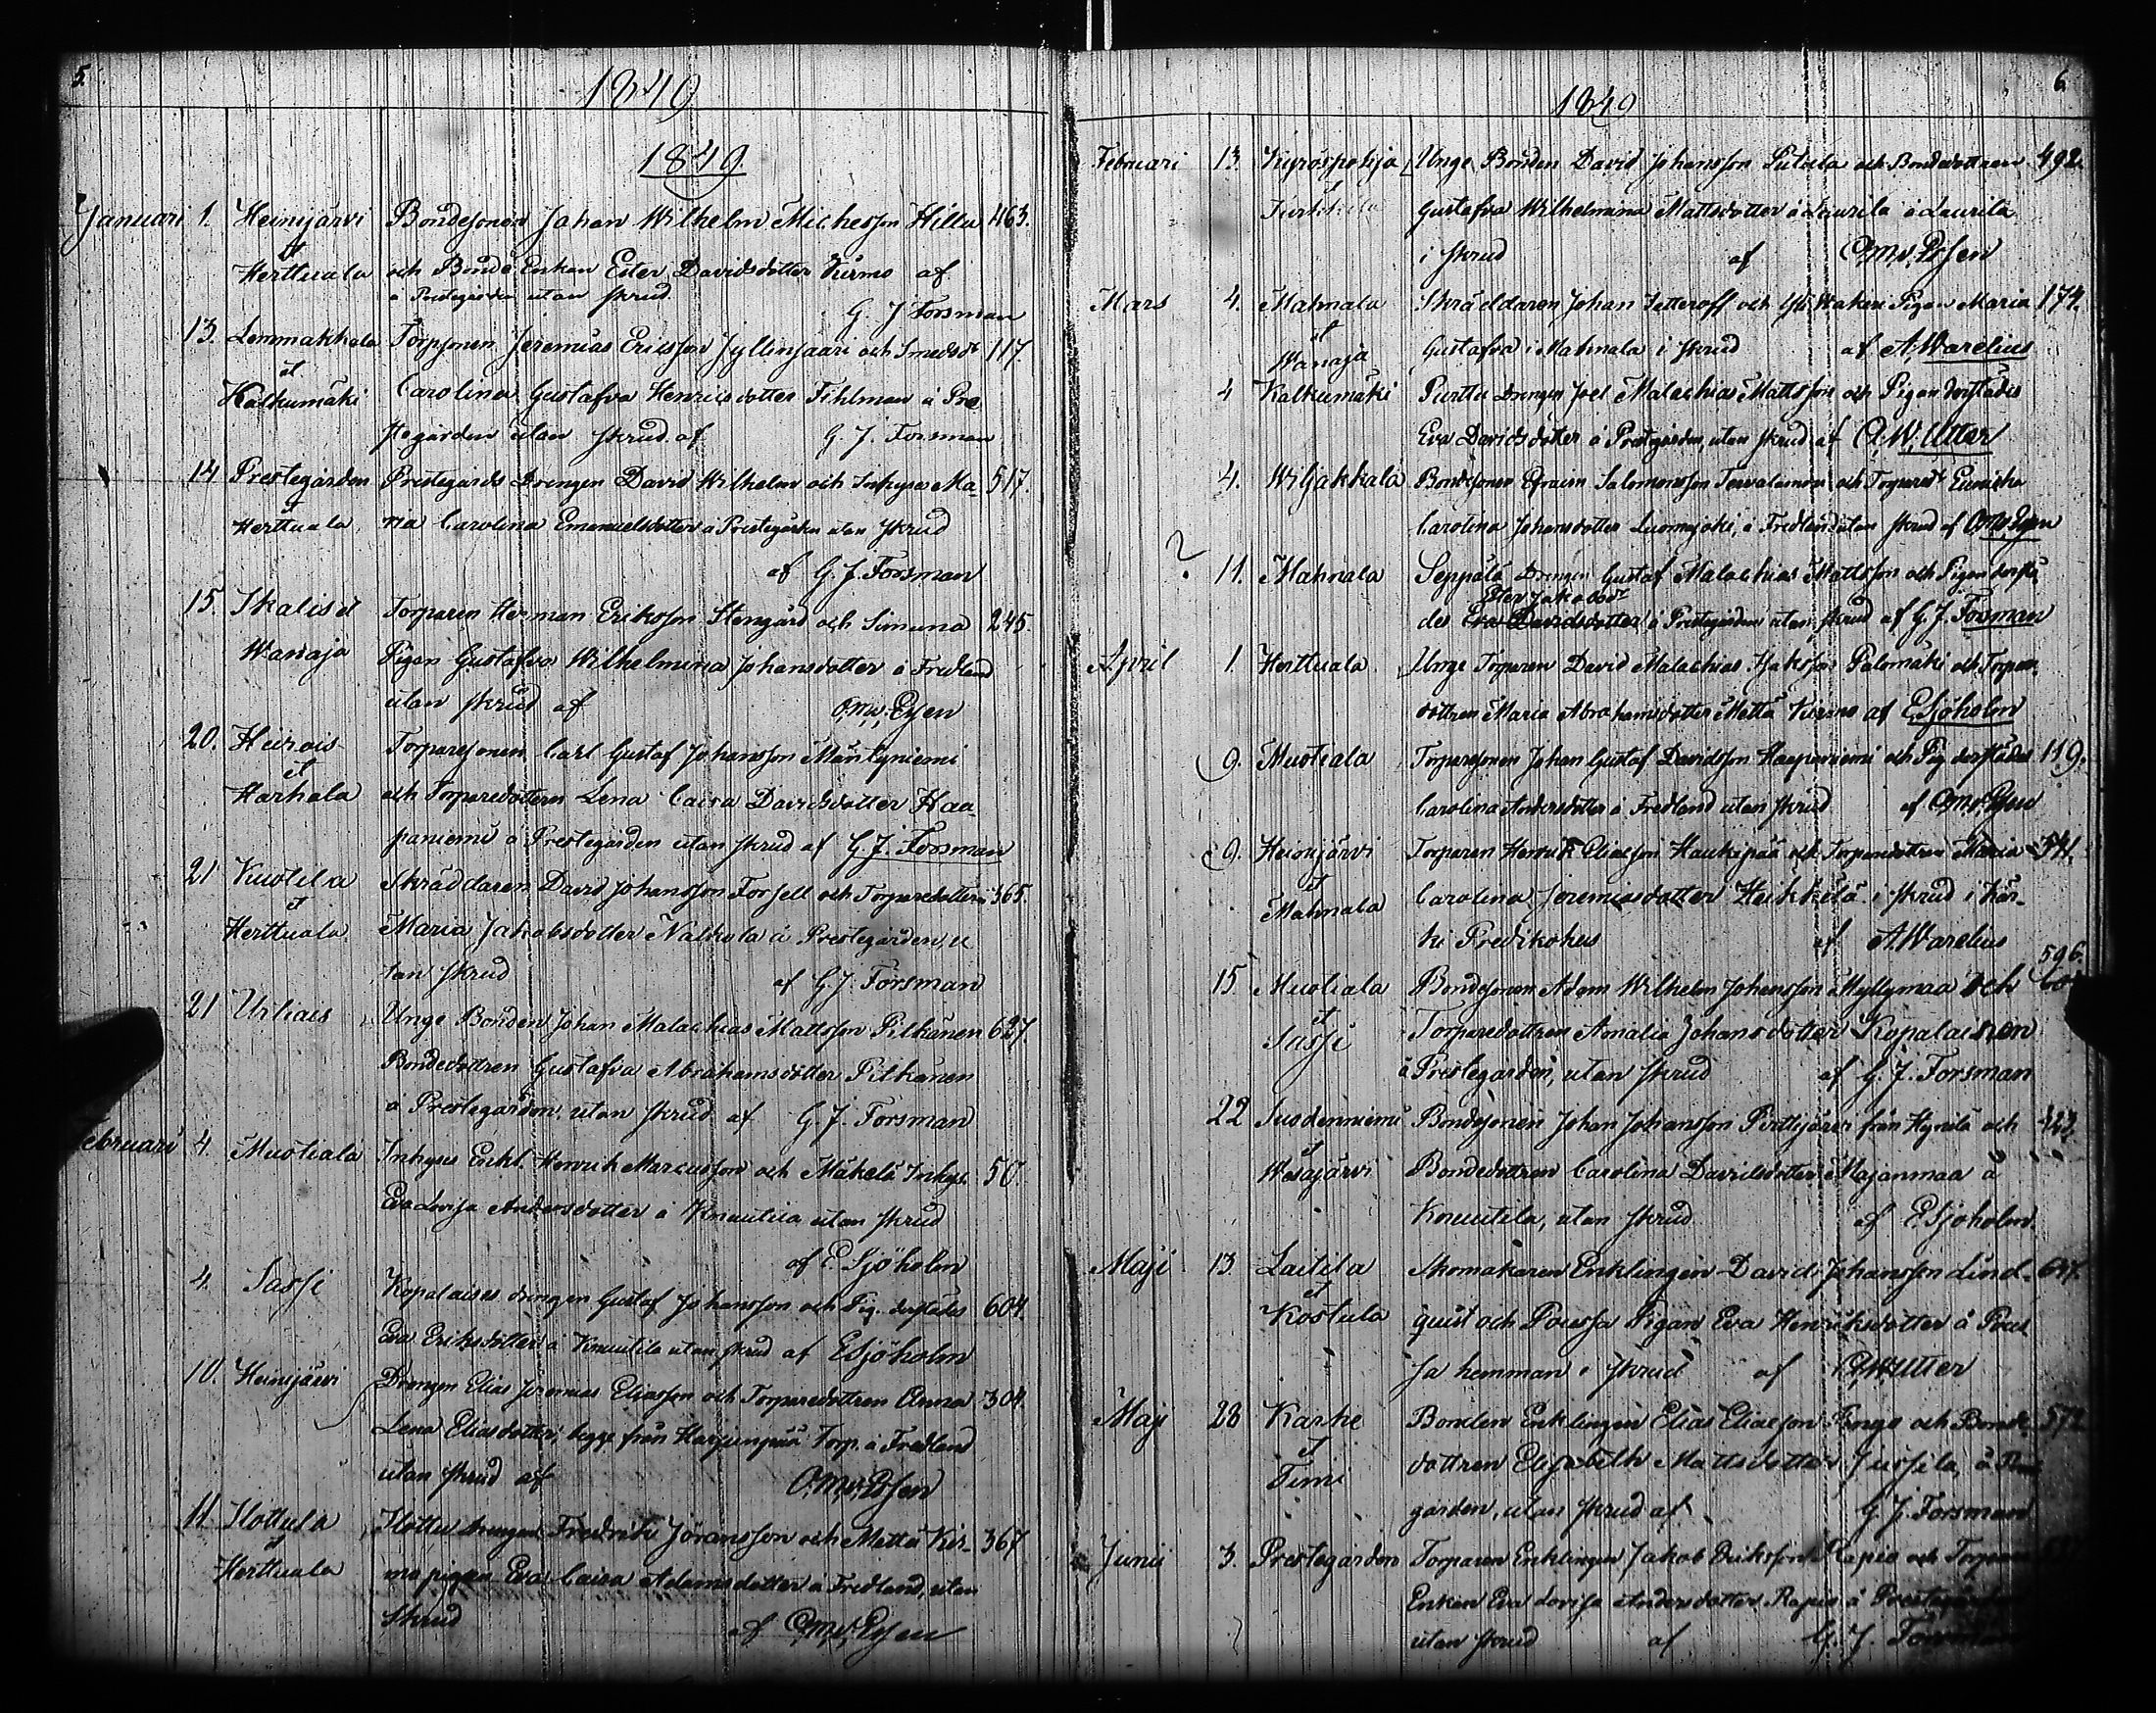 5.
1849
1849.
Januari 1. Heinijärvi Bondesonen Johan Wilhelm Michelsson Hillu 463.
et
Herttuala och Bonde Enkan Ester Davidsdotter Kurmo af
å Prestegården utan skrud. G. J. Forsman
13. Lemmakkala Torpsonen Jeremias Ericsson Jyllinsaari och Smedsdr 117.
et
Kalkumäki Carolina Gustafva Henricsdotter Tihlman å Pre
stegården utan skrud af G. J. Forsman
14 Prestegården Prestegårds Drengen David Wilhelm och Inhyses Ma- 517.
et
Herttuala ria Carolina Emanuelsdotter å Prestegården utan skrud
af G. J. Forsman
15. Skalis et Torparen Herman Eriksson Stengård och Simuna 245.
Wanaja Pigan Gustafva Wilhelmina Johansdotter å Fredland
utan skrud af O.M.v. Essen
20. Heinois Torparesonen Carl Gustaf Johansson Mäntyniemi
et
Harhala och Torparedottern Lena Caisa Davidsdotter Haa-
paniemi å Prestegården utan skrud af G. J. Forsman
21 Kuotila Skräddaren David Johansson Forsell och Torparedottern 365.
et
Herttuala Maria Jakobsdotter Nalkala å Prestegården, u
tan skrud af G. J. Forsman
21 Urhais Unge Bonden Johan Malachias Mattsson Pitkänen 627.
Bondedottren Gustafva Abrahamsdotter Pitkänen
å Prestegården utan skrud af G. J. Forsman
Februari 4. Muotiala Inhyses Enkl. Henrik Marcusson och Mäkelä Inhys. 50.
Eva Lovisa Andersdotter å Knuutila utan skrud
af E. Sjöholm
4. Sassi Kopalaises drengen Gustaf Johansson och Pig. derstädes 604.
Eva Eriksdotter å Knuutila utan skrud af E Sjöholm
10. Heinijärvi Drengen Elias Jeremias Eliasson och Torparedottren Anna 304.
Lena Eliasdotter, begge från Harjunpää Torp. å Fredland
utan skrud af O.M.v. Essen
11. Hottula Hottu drengen Fredrik Jöransson och Mettä Kur- 367
et
Herttuala mo pigan Eva Caisa Adamsdotter å Fredland, utan
skrud af O.M.v. Essen
6.
1849
Februari 13. Kyröspohja Unge Bonden David Johansson och Bondedottren 492.
Gustafva Wilhelmina Mattsdotter å Laurila
i skrud af O.M.v. Essen
Mars 4. Mahnala Skräddaren Johan Tetteroff och Pigan Maria 174.
et
Wanaja Gustafva i Mahnala i skrud af A. Warelius
4 Kalkumäki Purttu Drengen Joel Malachias Mattsson och Pigan derstädes
Eva Davidsdotter å Prestegården, utan skrud af O. W. Utter
4. Wiljakkala Bondesonen Efraim Salomonsson och Torparedr
Carolina Johansdotter Luomajoki, å Fredland utan skrud af O.M.v. Essen
? 11. Mahnala Seppälä Drengen Gustaf Malachias Mattsson och Pigan derstä
Ester Jakobsdr
des Eva Davidsdotter å Prestegården utan skrud af G. J. Forsman
April 1 Herttuala Unge Torparen David Malachias Isaksson Palomäki och Torpare
dottren Maria Abrahamsdotter Mettä Kurmo af E. Sjöholm
9. Muotiala Torparesonen Johan Gustaf Davidsson Haapaniemi och Pig derstädes 119.
Carolina Andersdotter å Fredland utan skrud af O.M.v. Essen
9. Heinijärvi Torparen Henrik Eliasson Haukipää och Torparedottren Maria 541.
et
Mahnala Carolina Jeremiasdotter Heikkilä i skrud i Kär-
ki Predikohus af A. Warelius
596.
15 Muotiala Bondesonen Adam Wilhelm Johansson Myllymaa och
et
Sassi Torparedottren Amalia Johansdotter Kopalainen
å Prestegården, utan skrud af G. J. Forsman
22 Suodenniemi Bondesonen Johan Johansson Pirttijärvi från Hyrilä och 423.
et
Wesajärvi Bondedottren Carolina Davidsdotter Majanmaa å
Knuutila, utan skrud af E Sjöholm.
Maji 13. Laitila Skomakaren Enklingen David Johansson Lind- 647.
et
Kostula quist och Poussa Pigan Eva Henriksdotter å Pous
sa hemman i skrud af O. W. Utter
Maji 28 Karhe Bonden Enklingen Elias Eliasson och Bonde- 572
et
Timi dottren Elisabeth Mattsdotter Jussila, å Preste
gården, utan skrud af G. J. Forsman
Junii 3. Prestegården Torparen Enklingen Jakob Eriksson Rapio och Torpare
Enkan Eva Lovisa Andersdotter Rapio å Prestegården
utan skrud af G. J. Forsman